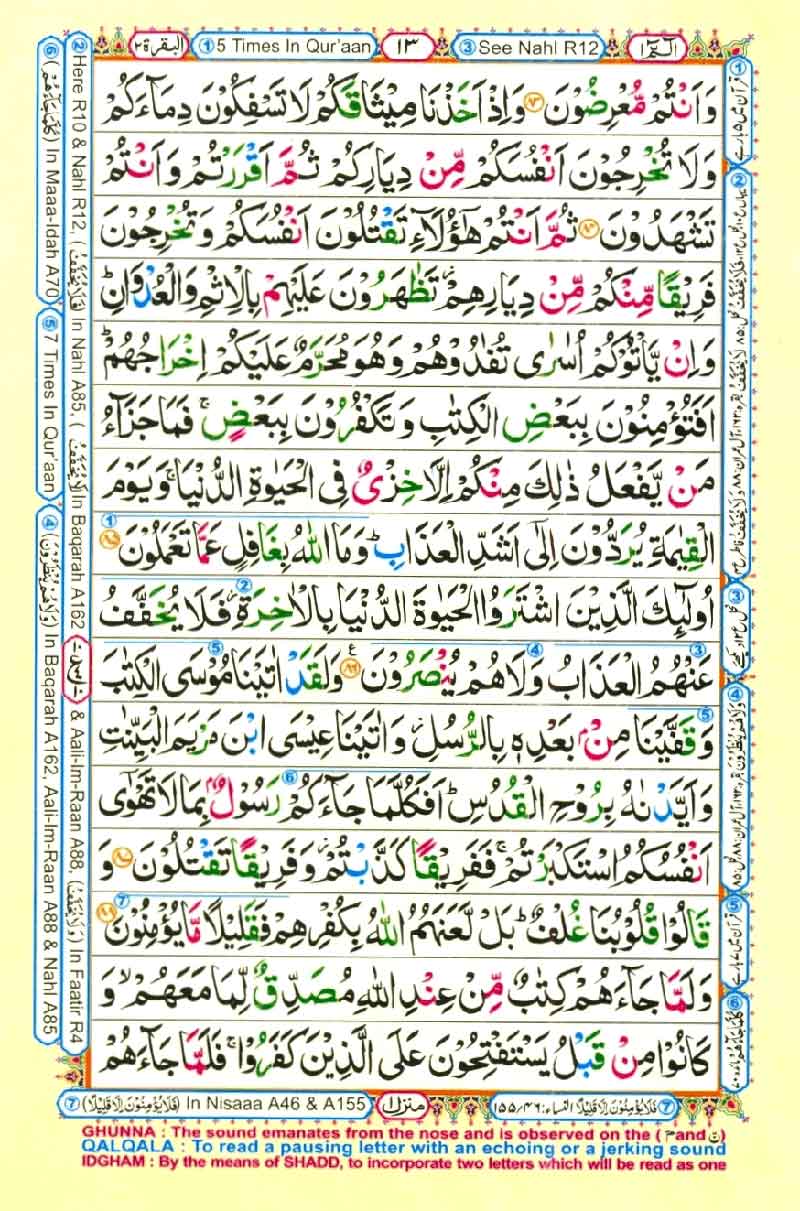 الٓمّٓ ١
③ See Nahl R12
١٣
① 5 Times In Qur'aan
البقرة ٢
وَاَنْتُمْ مُّعْرِضُوْنَ ﴿۸۳﴾ وَاِذْ اَخَذْنَا مِيْثَاقَكُمْ لَا تَسْفِكُوْنَ دِمَآءَكُمْ
وَلَا تُخْرِجُوْنَ اَنْفُسَكُمْ مِّنْ دِيَارِكُمْ ثُمَّ اَقْرَرْتُمْ وَاَنْتُمْ
تَشْهَدُوْنَ ﴿۸۴﴾ ثُمَّ اَنْتُمْ هٰٓؤُلَآءِ تَقْتُلُوْنَ اَنْفُسَكُمْ وَتُخْرِجُوْنَ
فَرِيْقًا مِّنْكُمْ مِّنْ دِيَارِهِمْ ۫ تَظٰهَرُوْنَ عَلَيْهِمْ بِالْاِثْمِ وَالْعُدْوَانِ ؕ
وَاِنْ يَّاْتُوْكُمْ اُسٰرٰى تُفٰدُوْهُمْ وَهُوَ مُحَرَّمٌ عَلَيْكُمْ اِخْرَاجُهُمْ ؕ
اَفَتُؤْمِنُوْنَ بِبَعْضِ الْكِتٰبِ وَتَكْفُرُوْنَ بِبَعْضٍ ۚ فَمَا جَزَآءُ
مَنْ يَّفْعَلُ ذٰلِكَ مِنْكُمْ اِلَّا خِزْىٌ فِى الْحَيٰوةِ الدُّنْيَا ۚ وَيَوْمَ
الْقِيٰمَةِ يُرَدُّوْنَ اِلٰٓى اَشَدِّ الْعَذَابِ ؕ وَمَا اللّٰهُ بِغَافِلٍ عَمَّا تَعْمَلُوْنَ ① ﴿۸۵﴾
اُولٰٓئِكَ الَّذِيْنَ اشْتَرَوُا الْحَيٰوةَ الدُّنْيَا بِالْاٰخِرَةِ ؗ ② فَلَا يُخَفَّفُ
③ عَنْهُمُ الْعَذَابُ ④ وَلَا هُمْ يُنْصَرُوْنَ ﴿۸۶﴾ ع ⑤ وَلَقَدْ اٰتَيْنَا مُوْسَى الْكِتٰبَ
⑤ وَقَفَّيْنَا مِنْۢ بَعْدِهٖ بِالرُّسُلِ ؗ وَاٰتَيْنَا عِيْسَى ابْنَ مَرْيَمَ الْبَيِّنٰتِ
وَاَيَّدْنٰهُ بِرُوْحِ الْقُدُسِ ؕ اَفَكُلَّمَا جَآءَكُمْ ⑥ رَسُوْلٌۢ بِمَا لَا تَهْوٰٓى
اَنْفُسُكُمُ اسْتَكْبَرْتُمْ ۚ فَفَرِيْقًا كَذَّبْتُمْ ؗ وَفَرِيْقًا تَقْتُلُوْنَ ﴿۸۷﴾ وَ
قَالُوْا قُلُوْبُنَا غُلْفٌ ؕ بَلْ لَّعَنَهُمُ اللّٰهُ بِكُفْرِهِمْ فَقَلِيْلًا مَّا يُؤْمِنُوْنَ ⑦ ﴿۸۸﴾
وَلَمَّا جَآءَهُمْ كِتٰبٌ مِّنْ عِنْدِ اللّٰهِ مُصَدِّقٌ لِّمَا مَعَهُمْ ۙ وَ
كَانُوْا مِنْ قَبْلُ يَسْتَفْتِحُوْنَ عَلَى الَّذِيْنَ كَفَرُوْا ۚ فَلَمَّا جَآءَهُمْ
② Here R10 & Nahl R12, (فَلَا يُخَفَّفُ) In Nahl A85, (لَا يُخَفَّفُ) In Baqarah A162 & Aali-Im-Raan A88, (وَلَا يُخَفَّفُ) In Faatir R4
⑥ (كُلَّمَا جَآءَهُمْ) In Maaa-Idah A70
⑤ 7 Times In Qur'aan
④ (وَلَا هُمْ يُنْظَرُوْنَ) In Baqarah A162, Aali-Im-Raan A88 & Nahl A85
① قرآن میں ۵ بار ہے
③ نحل ع ۱۲ دیکھئے
⑤ قرآن میں ۷ بار ہے
⑦ فَلَا يُؤْمِنُوْنَ اِلَّا قَلِيْلًا النساء: ۴۶، ۱۵۵
منزل ١
⑦ (فَلَا يُؤْمِنُوْنَ اِلَّا قَلِيْلًا) In Nisaaa A46 & A155
GHUNNA : The sound emanates from the nose and is observed on the ( م and ن )
QALQALA : To read a pausing letter with an echoing or a jerking sound
IDGHAM : By the means of SHADD, to incorporate two letters which will be read as one